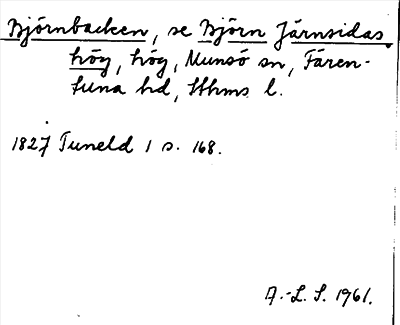 Björnbacken, se Björn Järnsidas
hög, hög, Munsö sn, Fären-
tuna hd, Sthms l.
1827 Tuneld 1 s. 168.
A.-L. S. 1961.